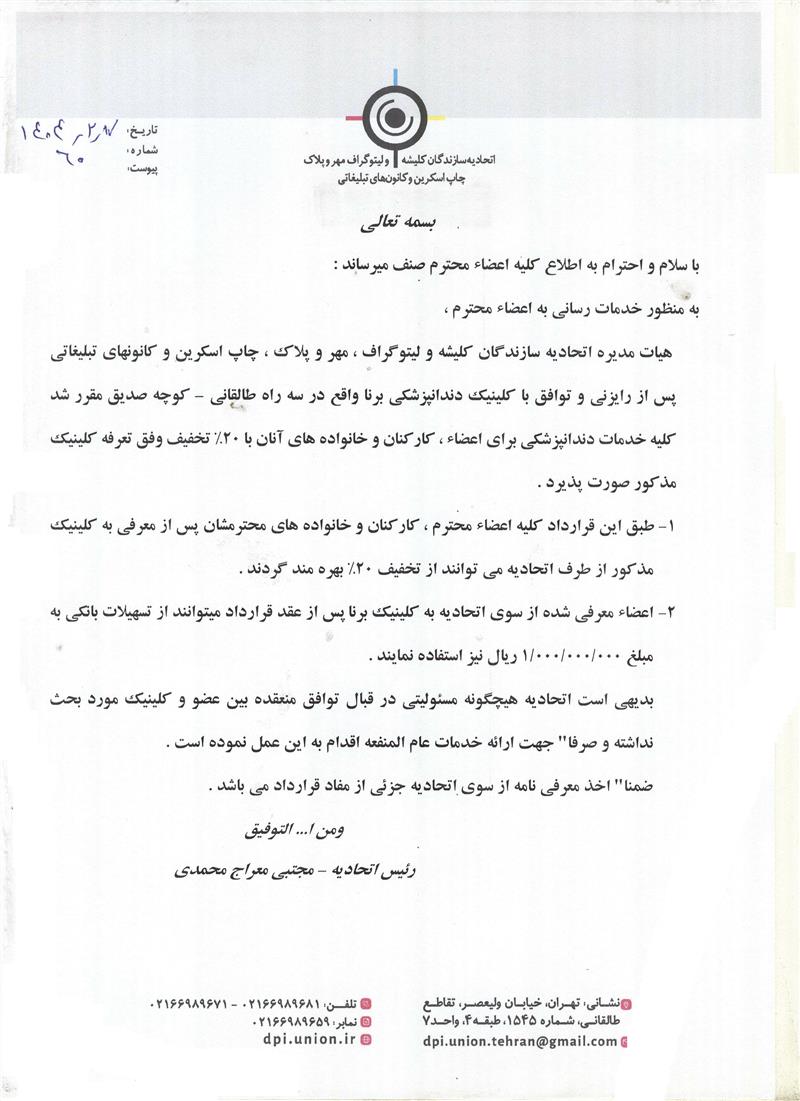 اتحادیه سازندگان کلیشه و لیتوگراف مهر و پلاک
چاپ اسکرین و کانون‌های تبلیغاتی
تاریخ:
شماره: ۶۰
پیوست:
بسمه تعالی
با سلام و احترام به اطلاع کلیه اعضاء محترم صنف میرساند :
به منظور خدمات رسانی به اعضاء محترم ،
هیات مدیره اتحادیه سازندگان کلیشه و لیتوگراف ، مهر و پلاک ، چاپ اسکرین و کانونهای تبلیغاتی
پس از رایزنی و توافق با کلینیک دندانپزشکی برنا واقع در سه راه طالقانی – کوچه صدیق مقرر شد
کلیه خدمات دندانپزشکی برای اعضاء ، کارکنان و خانواده های آنان با ۲۰٪ تخفیف وفق تعرفه کلینیک
مذکور صورت پذیرد .
۱- طبق این قرارداد کلیه اعضاء محترم ، کارکنان و خانواده های محترمشان پس از معرفی به کلینیک
مذکور از طرف اتحادیه می توانند از تخفیف ۲۰٪ بهره مند گردند .
۲- اعضاء معرفی شده از سوی اتحادیه به کلینیک برنا پس از عقد قرارداد میتوانند از تسهیلات بانکی به
مبلغ ۱/۰۰۰/۰۰۰/۰۰۰ ریال نیز استفاده نمایند .
بدیهی است اتحادیه هیچگونه مسئولیتی در قبال توافق منعقده بین عضو و کلینیک مورد بحث
نداشته و صرفا" جهت ارائه خدمات عام المنفعه اقدام به این عمل نموده است .
ضمنا" اخذ معرفی نامه از سوی اتحادیه جزئی از مفاد قرارداد می باشد .
ومن ا... التوفیق
رئیس اتحادیه – مجتبی معراج محمدی
نشانی: تهران، خیابان ولیعصر، تقاطع
طالقانی، شماره ۱۵۴۵، طبقه۴، واحد۷
dpi.union.tehran@gmail.com
تلفن: ۰۲۱۶۶۹۸۹۶۸۱ - ۰۲۱۶۶۹۸۹۶۷۱
نمابر: ۰۲۱۶۶۹۸۹۶۵۹
dpi.union.ir